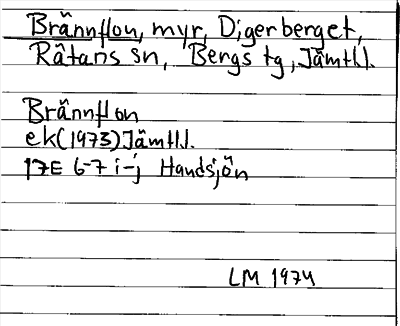 Brännflon, myr, Digerberget,
Rätans sn, Bergs tg, Jämtl.
Brännflon
ek(1973)Jämtl.
17E 6-7 i-j Handsjön
LM 1974